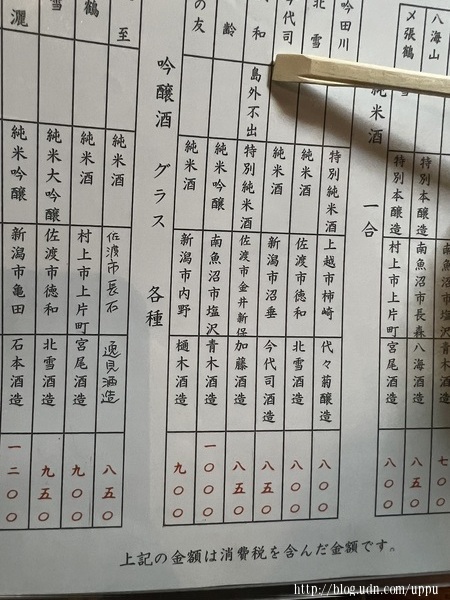 七〇〇
八海山 特別本醸造 南魚沼市長森 八海酒造 八五〇
〆張鶴 雪 特別本醸造 村上市上片町 宮尾酒造 八〇〇
純米酒 一合
吟田川 特別純米酒 上越市柿崎 代々菊醸造 八〇〇
北雪 純米酒 佐渡市徳和 北雪酒造 八〇〇
今代司 純米酒 新潟市沼垂 今代司酒造 八五〇
和 島外不出 特別純米酒 佐渡市金井新保 加藤酒造 八五〇
齢 純米吟醸 南魚沼市塩沢 青木酒造 一〇〇〇
の友 純米酒 新潟市内野 樋木酒造 九〇〇
吟醸酒 グラス 各種
至 純米酒 佐渡市長石 逸見酒造 八五〇
鶴 純米酒 村上市上片町 宮尾酒造 九〇〇
雪 純米大吟醸 佐渡市徳和 北雪酒造 九五〇
灑 純米吟醸 新潟市亀田 石本酒造 一二〇〇
上記の金額は消費税を含んだ金額です。
http://blog.udn.com/uppu